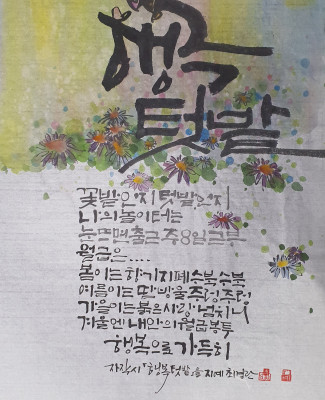 행복
텃밭
꽃밭인지 텃밭인지
나의 놀이터는
눈뜨면 출근 주8일 근무
월급은....
봄이는 하기지폐 수북수북
여름이는 땀방울 주렁주렁
가을이는 붉은사랑 넘치니
겨울엔 내안의 월급봉투
행복으로 가득히
자작시 「행복텃밭」을 지예 최경란